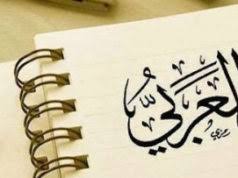 العَرَبيُّ